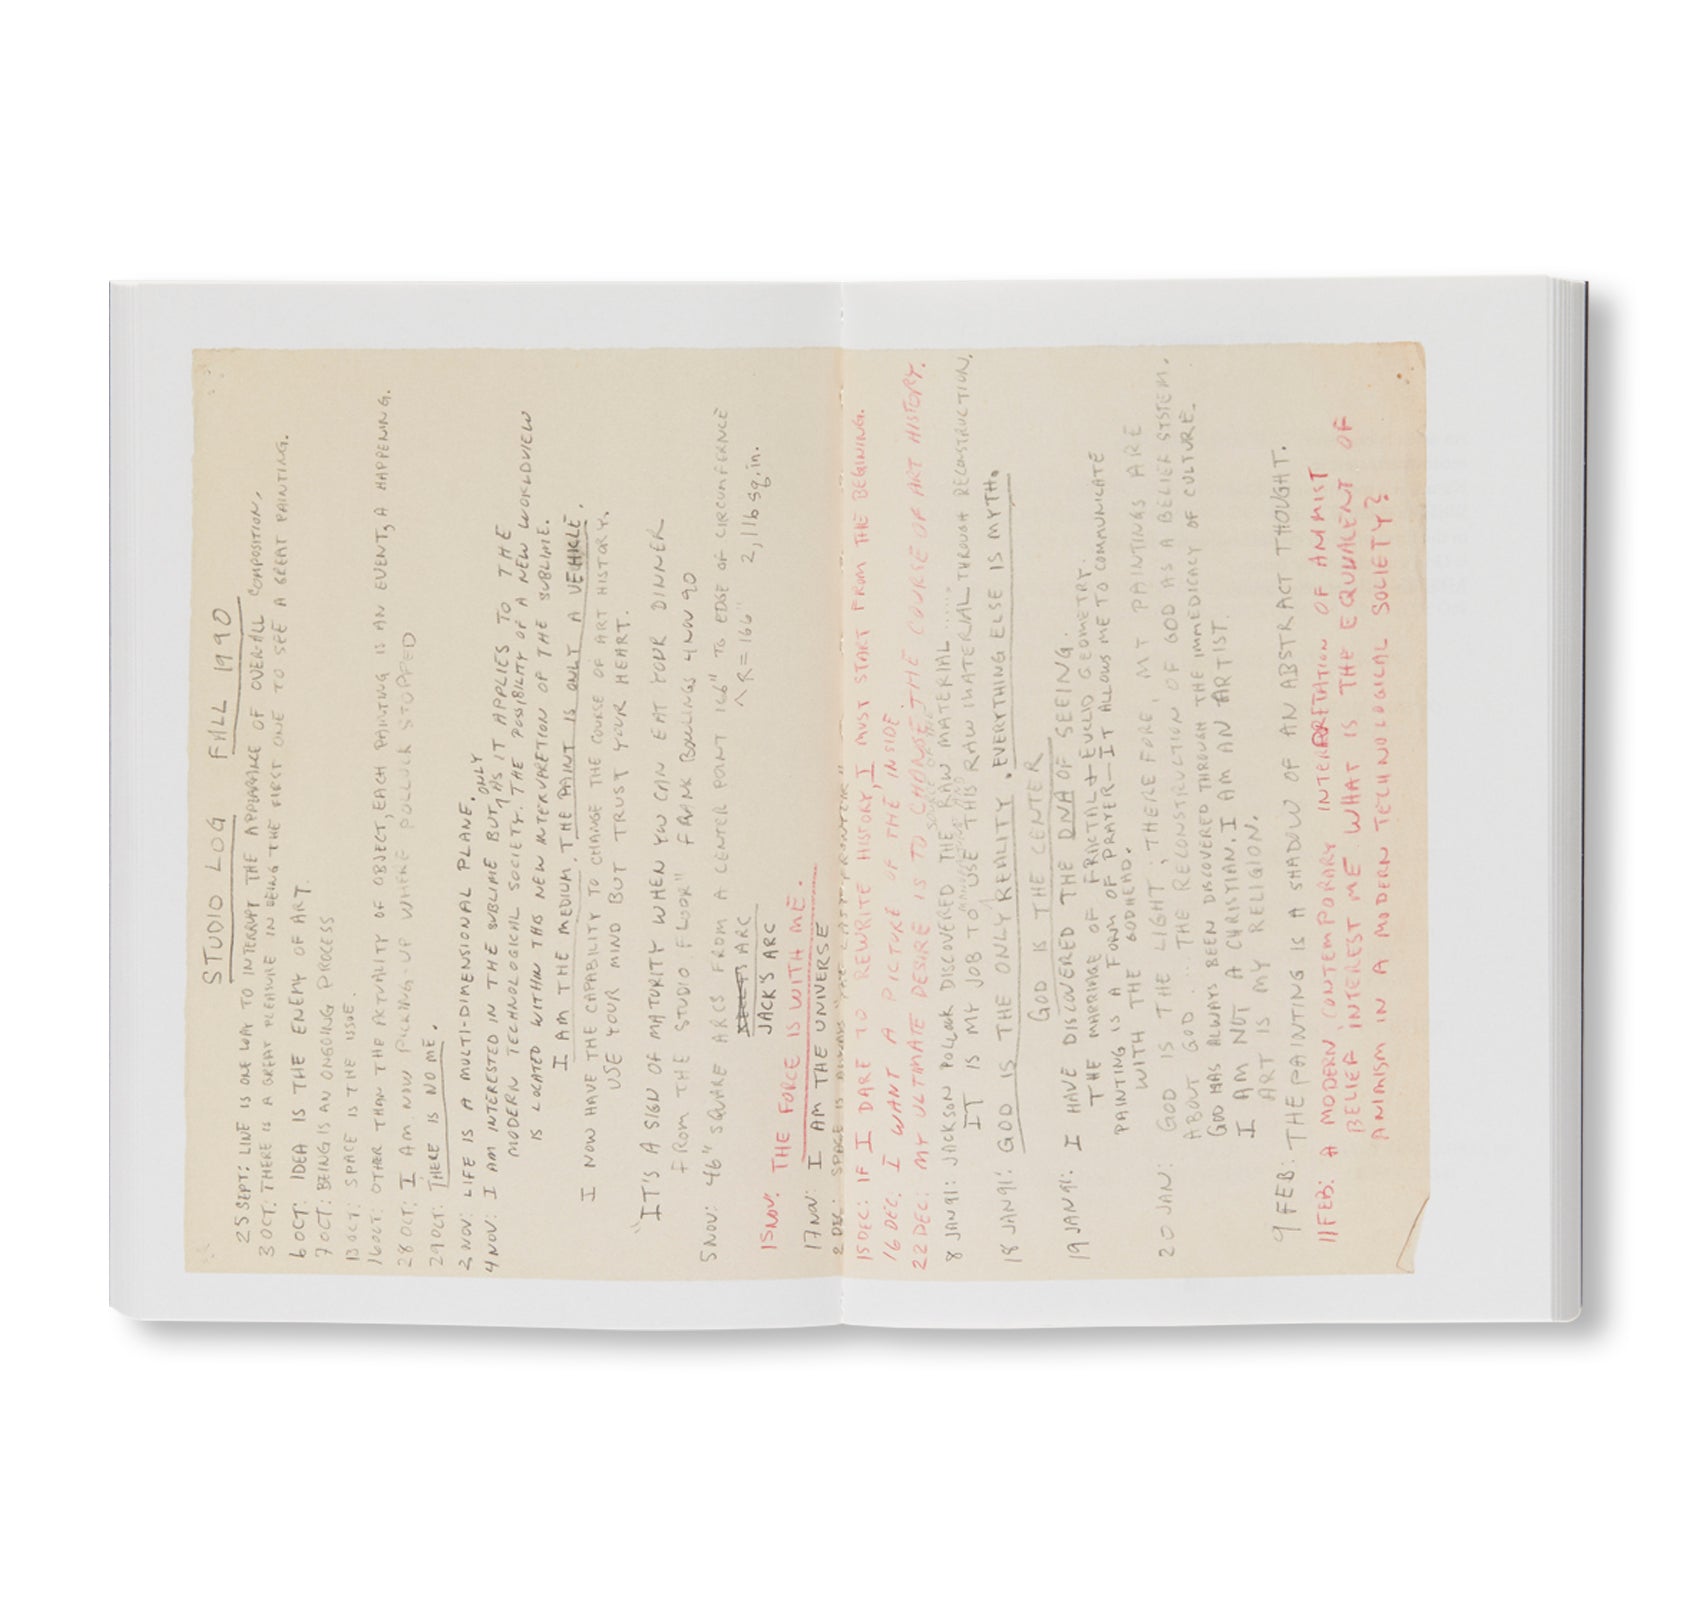 STUDIO LOG FALL 1990
25 SEPT: LINE IS ONE WAY TO INTERRUPT THE APPEARANCE OF OVER-ALL COMPOSITION.
3 OCT: THERE IS A GREAT PLEASURE IN BEING THE FIRST ONE TO SEE A GREAT PAINTING.
6 OCT: IDEA IS THE ENEMY OF ART.
7 OCT: BEING IS AN ONGOING PROCESS
13 OCT: SPACE IS THE ISSUE.
16 OCT: OTHER THAN THE ACTUALITY OF OBJECT, EACH PAINTING IS AN EVENT, A HAPPENING.
28 OCT: I AM NOW PICKING-UP WHERE POLLOCK STOPPED
29 OCT: THERE IS NO ME.
2 NOV: LIFE IS A MULTI-DIMENSIONAL PLANE.
4 NOV: I AM INTERESTED IN THE SUBLIME BUT ONLY AS IT APPLIES TO THE
MODERN TECHNOLOGICAL SOCIETY. THE POSSIBILITY OF A NEW WORLDVIEW
IS LOCATED WITHIN THIS NEW INTERPRETION OF THE SUBLIME.
I AM THE MEDIUM. THE PAINT IS ONLY A VEHICLE.
I NOW HAVE THE CAPABILITY TO CHANGE THE COURSE OF ART HISTORY.
USE YOUR MIND BUT TRUST YOUR HEART.
"IT'S A SIGN OF MATURITY WHEN YOU CAN EAT YOUR DINNER
FROM THE STUDIO FLOOR" FRANK BOWLINGS 4 NOV 90
5 NOV: 46" SQUARE ARCS FROM A CENTER POINT 166" TO EDGE OF CIRCUMFERENCE
^ R=166" 2,116 sq. in.
ARC
JACK'S ARC
15 NOV: THE FORCE IS WITH ME.
17 NOV: I AM THE UNIVERSE
2 DEC: SPACE IS ALWAYS "THE LAST FRONTIER"
15 DEC: IF I DARE TO REWRITE HISTORY, I MUST START FROM THE BEGINING.
16 DEC. I WANT A PICTURE OF THE INSIDE.
22 DEC: MY ULTIMATE DESIRE IS TO CHANGE THE COURSE OF ART HISTORY.
8 JAN 91: JACKSON POLLOCK DISCOVERED THE RAW MATERIAL.....
IT IS MY JOB TO USE THIS RAW MATERIAL THROUGH RECONSTRUCTION.
18 JAN 91: GOD IS THE ONLY REALITY. EVERYTHING ELSE IS MYTH.
GOD IS THE CENTER
19 JAN 91: I HAVE DISCOVERED THE DNA OF SEEING.
THE MARRIAGE OF FRACTAL + EUCLID GEOMETRY.
PAINTING IS A FORM OF PRAYER—IT ALLOWS ME TO COMMUNICATE
WITH THE GODHEAD.
20 JAN: GOD IS THE LIGHT; THEREFORE, MY PAINTINGS ARE
ABOUT GOD... THE RECONSTRUCTION OF GOD AS A BELIEF SYSTEM.
GOD HAS ALWAYS BEEN DISCOVERED THROUGH THE IMMEDICACY OF CULTURE.
I AM NOT A CHRISTIAN. I AM AN ARTIST.
ART IS MY RELIGION.
9 FEB: THE PAINTING IS A SHADOW OF AN ABSTRACT THOUGHT.
11 FEB: A MODERN CONTEMPORARY INTERPRETATION OF ANIMIST
BELIEF INTEREST ME. WHAT IS THE EQUVALENT OF
ANIMISM IN A MODERN TECHNOLOGICAL SOCIETY?